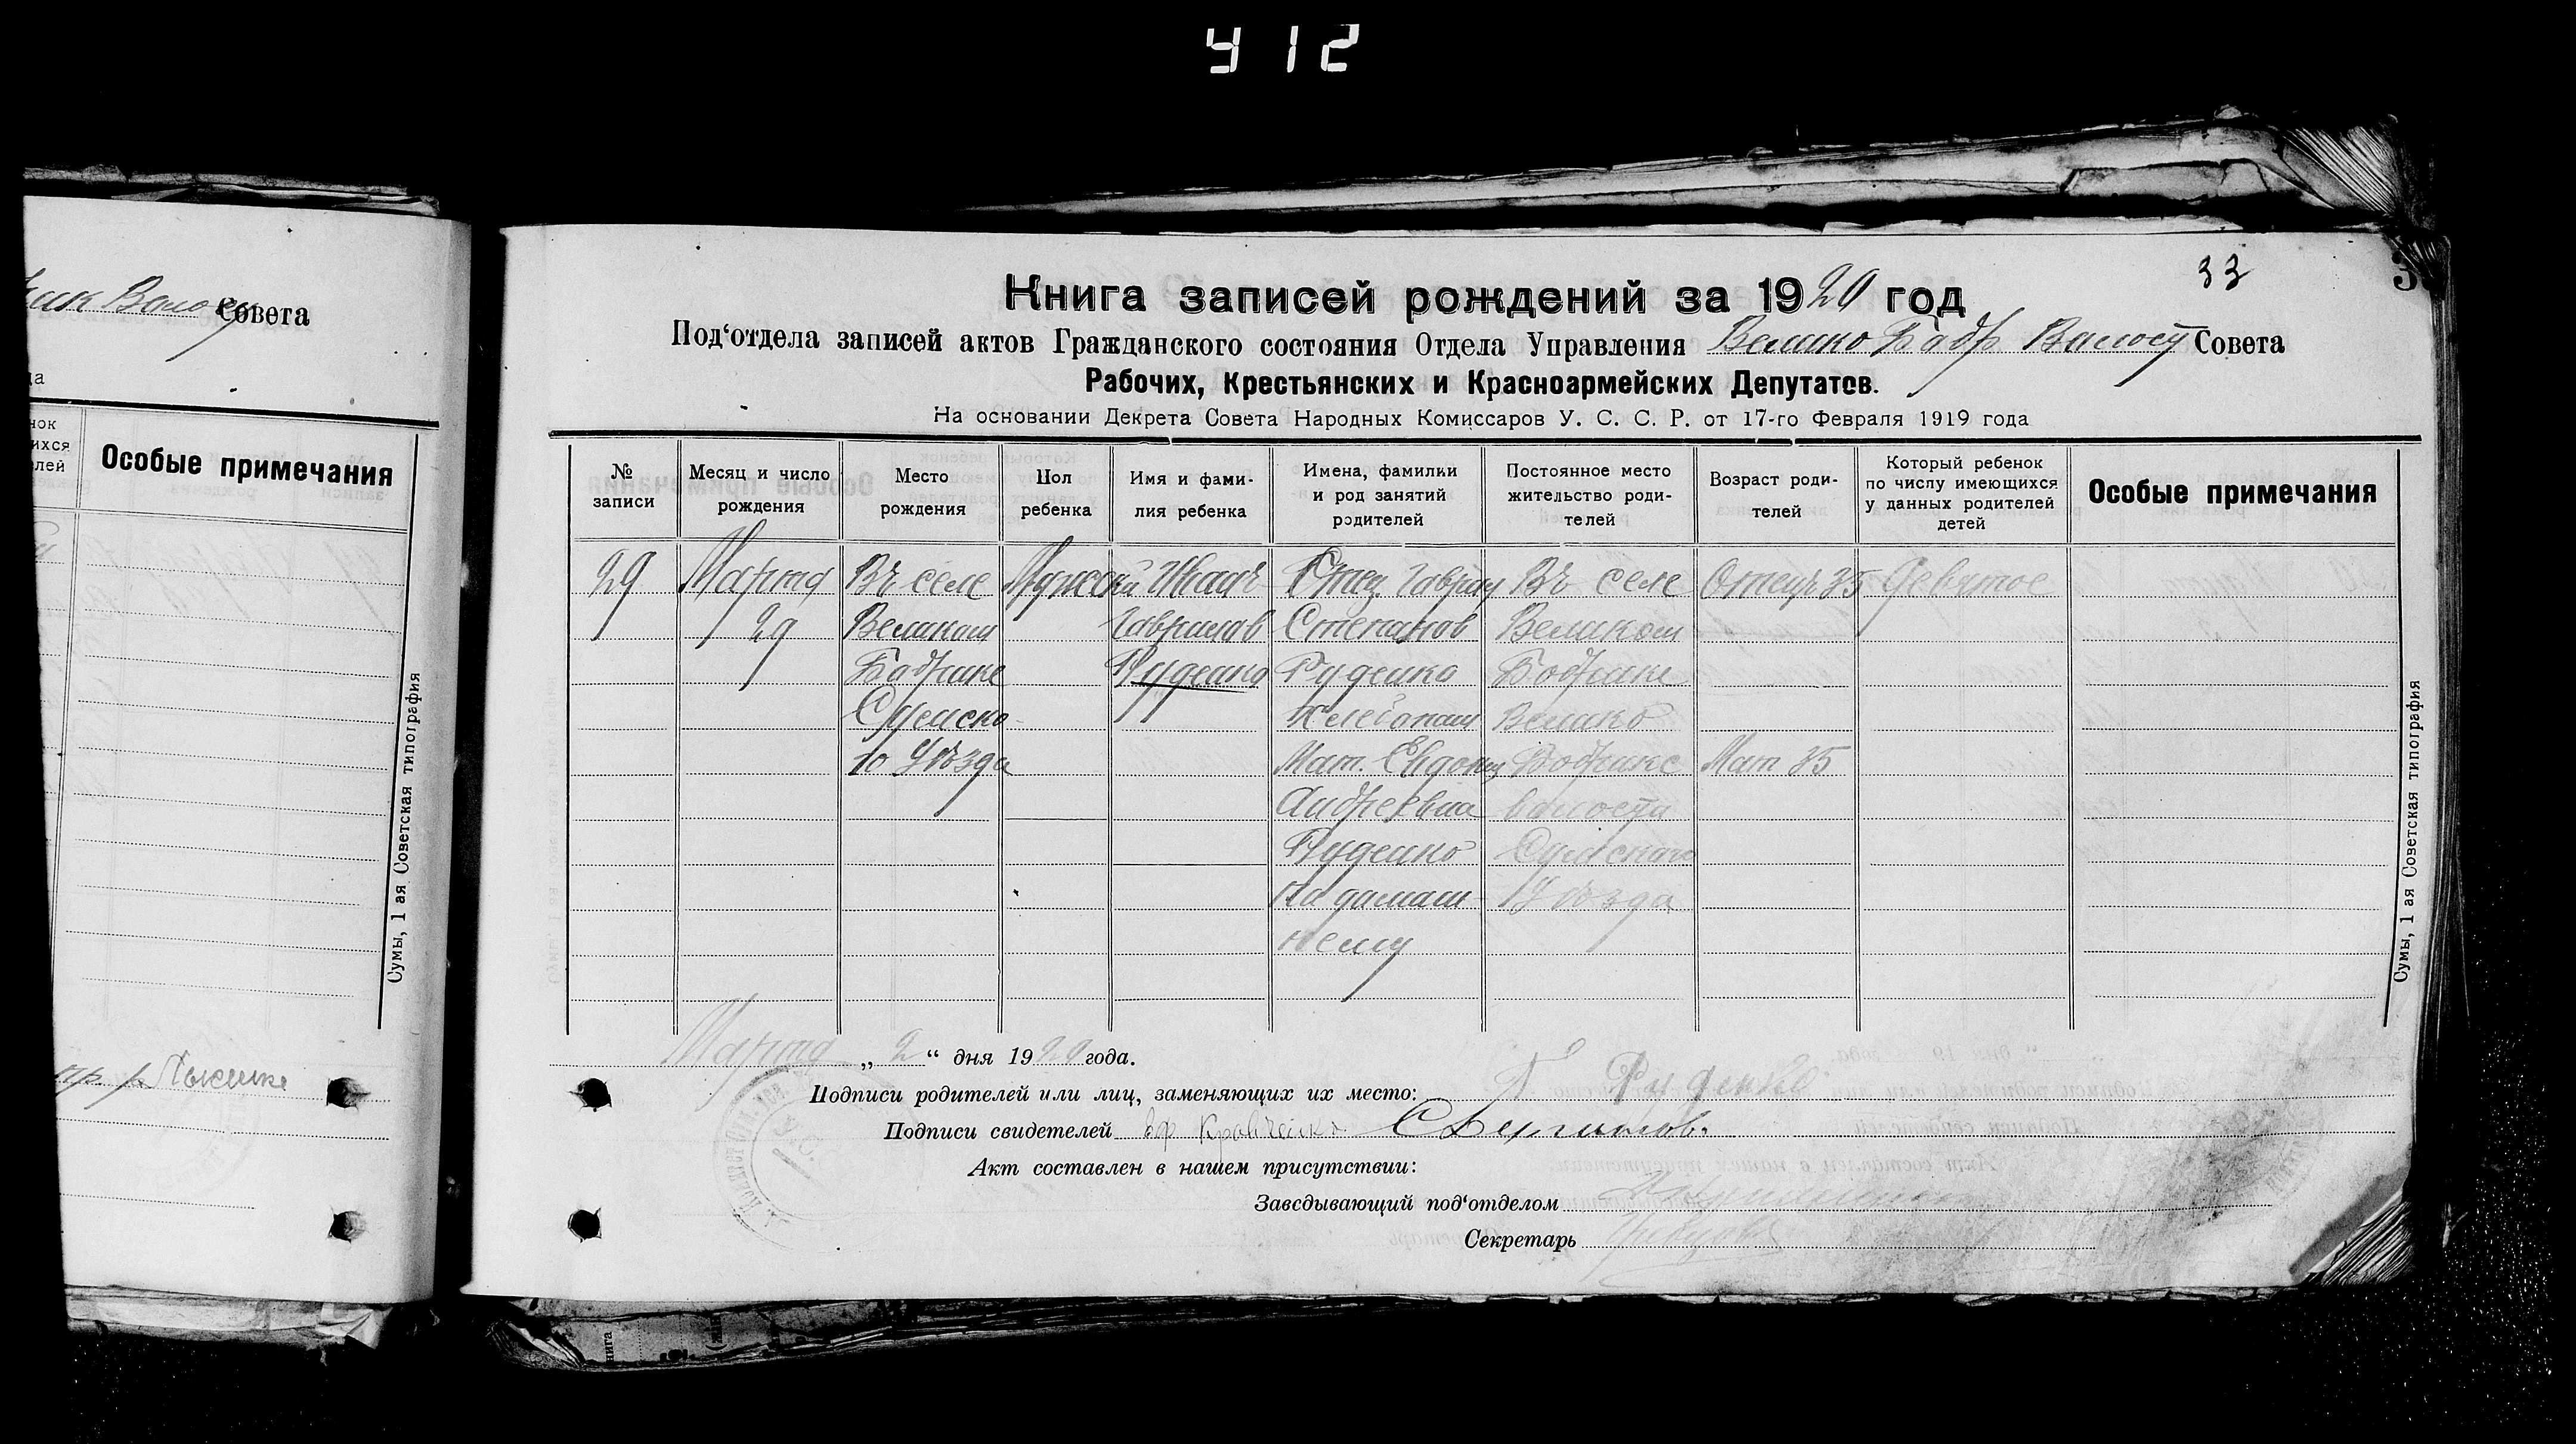 412
ик Волосу Совета
да
нок
ихся
елей
Особые примечания
Сумы, 1 ая Советская типография
33
3
Книга записей рождений за 1920 год
Под‘отдела записей актов Гражданского состояния Отдела Управления Велико Бобр Волост Совета
Рабочих, Крестьянских и Красноармейских Депутатов.
На основании Декрета Совета Народных Комиссаров У. С. С. Р. от 17-го Февраля 1919 года
№ записи
Месяц и число рождения
Место рождения
Пол ребенка
Имя и фами-
лия ребенка
Имена, фамилии и род занятий родителей
Постоянное место жительство роди-
телей
Возраст роди-
телей
Который ребенок по числу имеющихся у данных родителей детей
Особые примечания
29
Марта
29
Въ селе
Великом
Бобрике
Сумско-
го Уѣзда
Мужской
Иван
Гаврилов
Руденко
Отец Гаврил
Степанов
Руденко
хлебопаш
Мат. Евдокия
Андреевна
Руденко
по дамаш-
нему
Въ селе
Великом
Бобрике
Велико
Бобрикс
волости
Сумскаго
Уѣзда
Отец 35
Мат 35
Девятое
Сумы, 1 ая Советская типография
Марта „ 2 “ дня 1920 года.
Подписи родителей или лиц, заменяющих их место: Г Руденко
Подписи свидетелей Еф Кравченко
Акт составлен в нашем присутствии:
Заведывающий под‘отделом
Секретарь